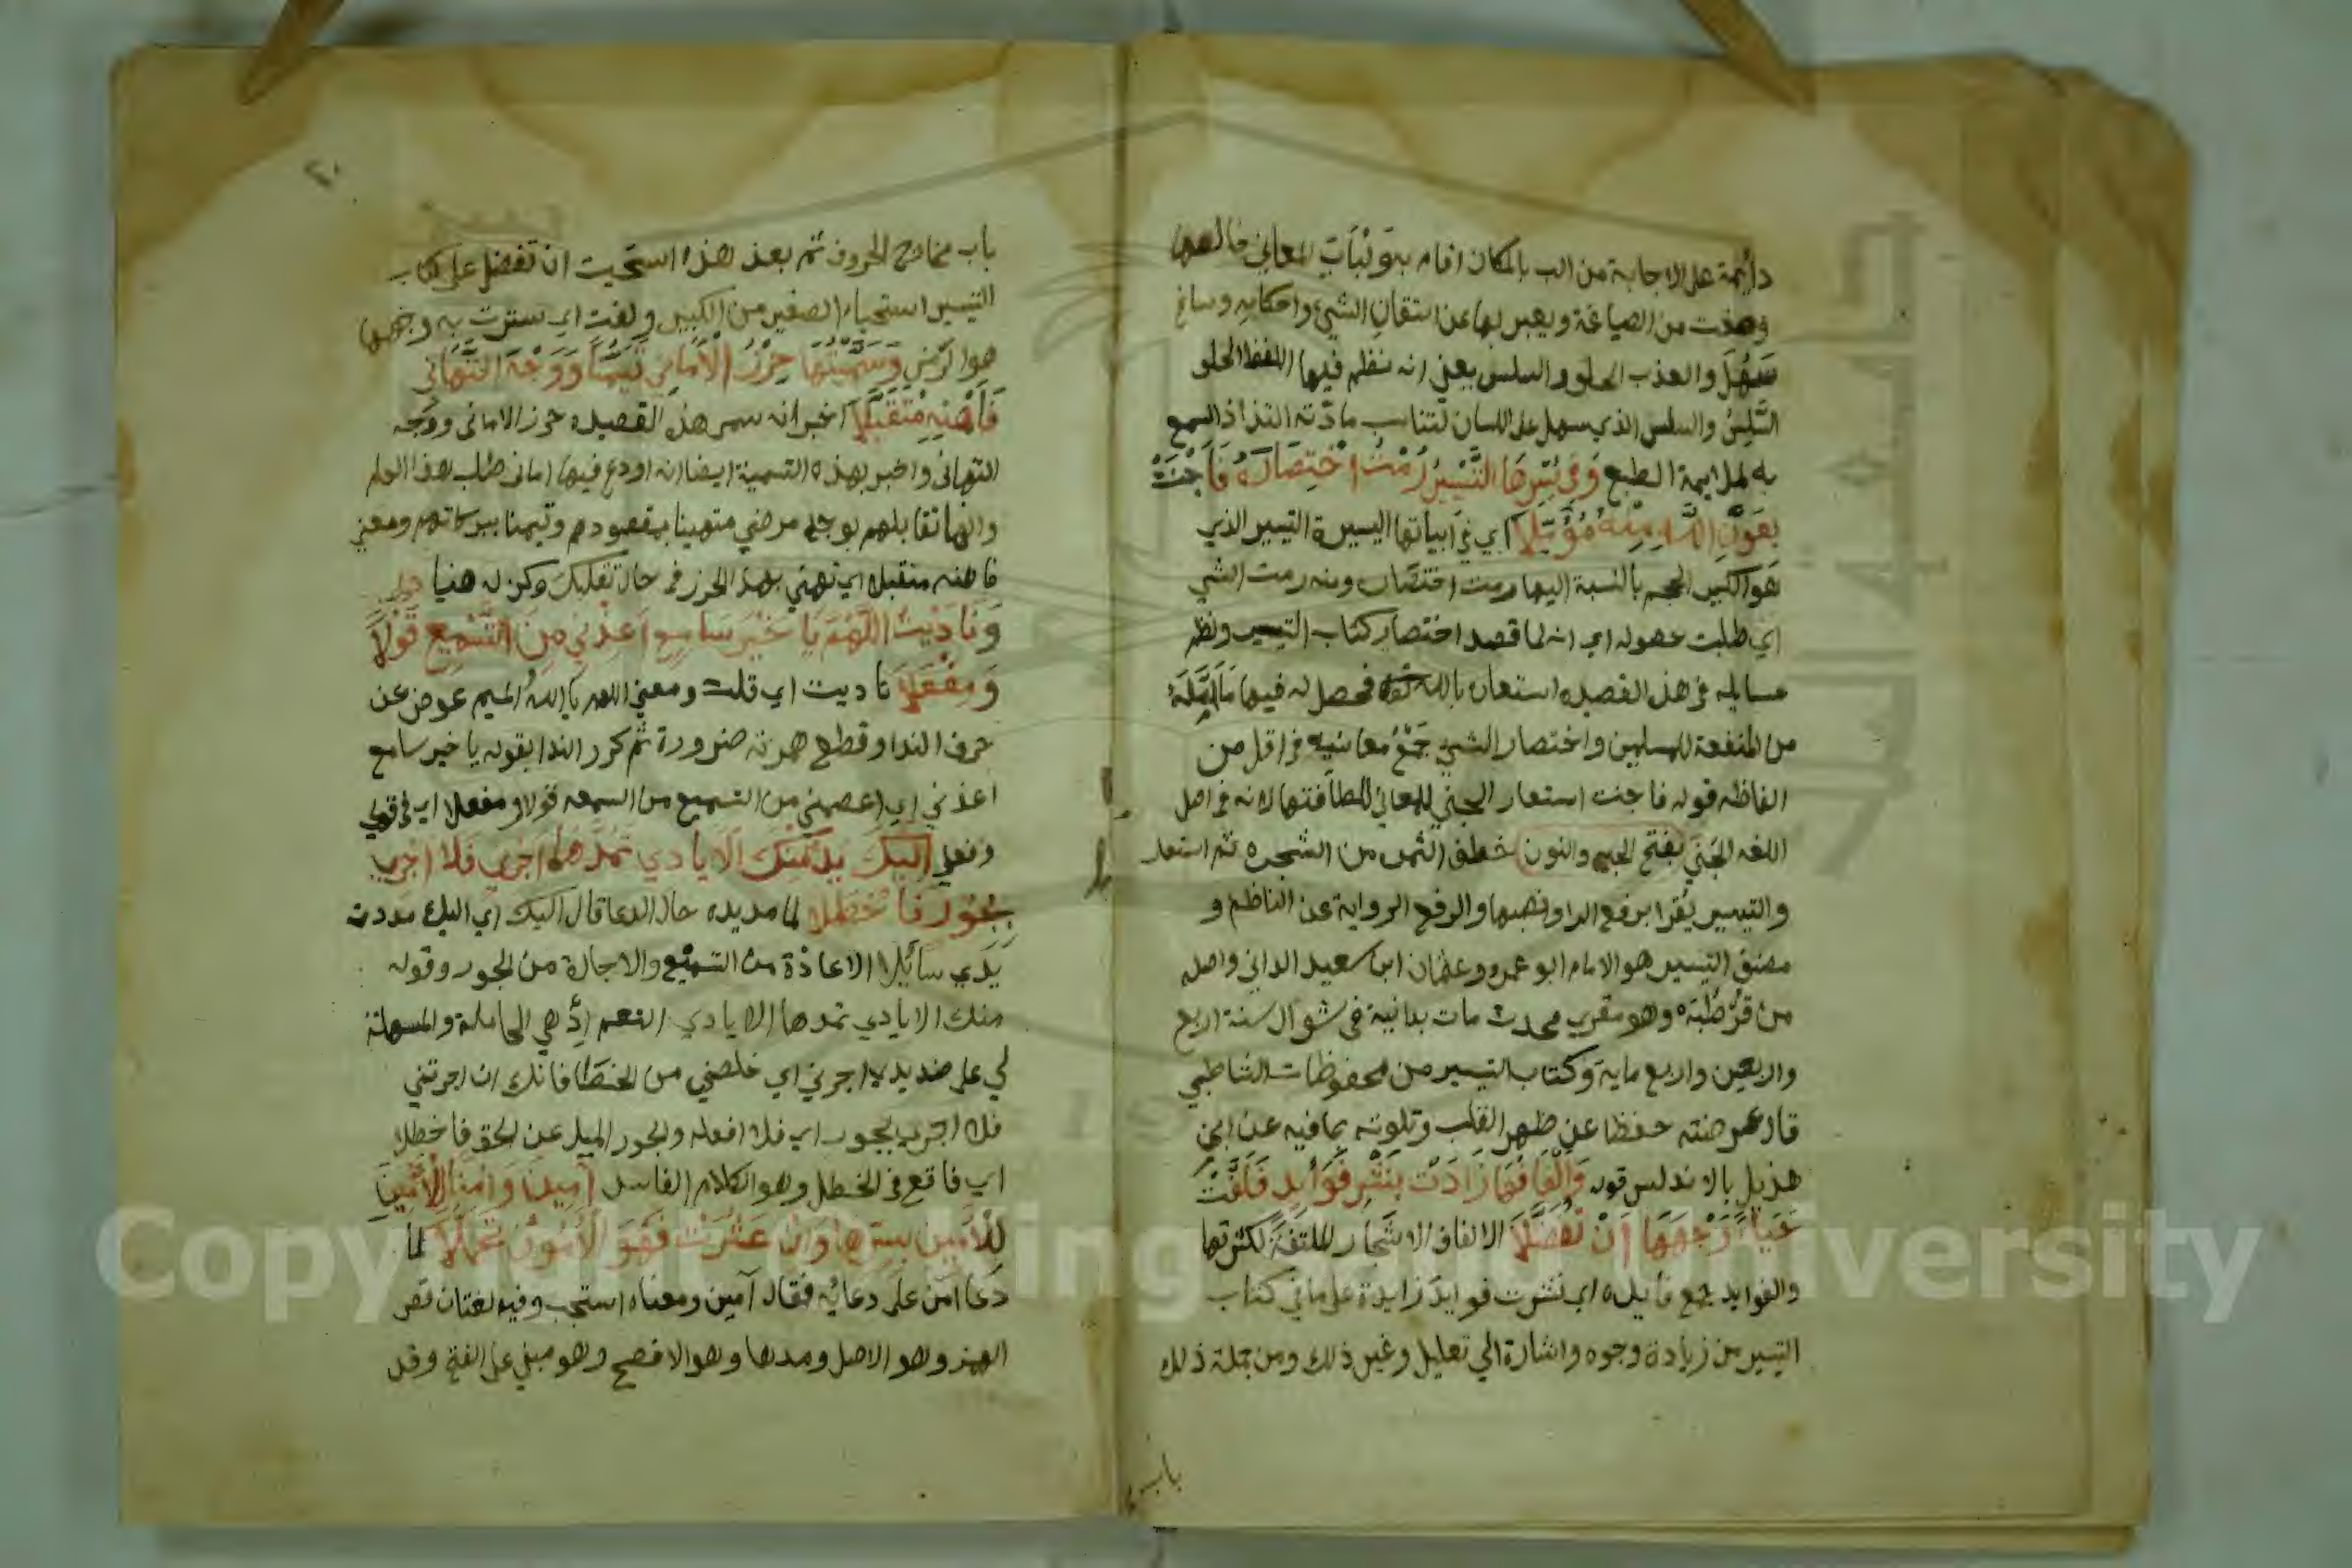 دائمة على الاجابة من الب بالمكان اقام به ولباب المعاني خالصها
وصغت من الصياغة ويعبر بها عن اتقان الشيء واحكامه وساغ
سَهُلَ والعذب الحلو والسلس يعني انه نظم فيها اللفظ الحلو
السَّلِسُ والسلس الذي سهل على اللسان لتناسب مادّته التذاذ السمع
به لملايمة الطبع وَفِي يُسْرِهَا التَّيْسِيرُ رُمْتُ اخْتِصَارَهُ فَأَجْنَتْ
بِعَوْنِ اللَّهِ مِنْهُ مُؤَمَّلَا اي في ابياتها اليسيرة التيسير الذي
هو الكبير الحجم بالنسبة اليها رمت اختصاره ومنه رمت الشي
اي طلبت حصوله اي انه لما قصد اختصار كتاب التيسير ونظم
مسايله في هذه القصيده استعان بالله تعالى فحصل له فيها ما امّله
من المنفعة للمسلمين واختصار الشي جَمْعُ معانيه في اقل من
الفاظه قوله فاجنت استعار الجنى للمعاني للطافتها لانه في اصل
اللغه الجَنَى بفتح الجيم والنون خطف الثمر من الشجره ثم استعار
والتيسير يُقرا برفع الرا ونصبها والرفع الرواية عن الناظم و
مصنف التيسير هو الامام ابو عمرو وعثمان ابن سعيد الداني واصله
من قُرْطُبَه وهو مقري محدث مات بدانية في شوال سنة اربع
واربعين واربع ماية وكتاب التيسير من محفوظات الشاطبي
قال عرضته حفظا عن ظهر القلب وتلوت بما فيه عن ابن
هذيل بالاندلس قوله وَأَلْفَافُهَا زَادَتْ بِنَشْرِ فَوَائِدٍ فَلَفَّتْ
حَيَاءً وَجْهَهَا أَنْ تُفَضَّلَا الالفاف الاشجار الملتفة لكثرتها
والفوايد جمع فايده اي نشرت فوايد زايدة على ما في كتاب
التيسير من زيادة وجوه واشارة الي تعليل وغير ذلك ومن جملة ذلك
باب
٢٠
باب مخارج الحروف ثم بعد هذه استحيت ان تفضل على كتاب
التيسير استحياء الصغير من الكبير ولفت اي سترت به وجهها
هو الرمز وَسَمَّيْتُهَا حِرْزَ الْأَمَانِي تَيَمُّنًا وَوَجْهَ التَّهَانِي
فَاهْنِهِ مُتَقَبِّلَا اخبر انه سمى هذه القصيده حرز الاماني ووجه
التهاني واخبر بهذه التسمية ايضا انه اودع فيها اماني طلب هذا العلم
وانها تقابلهم بوجه مرضي متهينا بمقصودهم وتيمنا ببركاتهم ومعنى
فاهنه متقبلا اي تهني بهذا الحرز في حال تقلبك وكن له هنيا
وَنَادَيْتُ اللَّهُمَّ يَا خَيْرَ سَامِعٍ أَعِذْنِي مِنَ التَّسْمِيعِ قَوْلًا
وَمِفْعَلَا ناديت اي قلت ومعنى اللهم يا الله الميم عوض عن
حرف الندا وقطع همزته ضرورة ثم كرر الندا بقوله يا خير سامع
اعذني اي اعصمني من التسميع من السمعه قولا ومفعلا اي في قولي
وفعلي إليك يدي منك الأيادي تمدها أجرني فلا أجري
بجور فأخطلا لما مد يده حال الدعا قال اليك اي اليك مددت
يَدِي سائلا الاعاذة من التسميع والاجارة من الجور وقوله
منك الايادي تمدها الايادي النعم اذ هي الحاملة والمسهلة
لي على مد يدي اجرني اي خلصني من الخطا فانك ان اجرتني
فلا اجري بجور اي فلا افعله والجور الميل عن الحق فاخطلا
اي فاقع في الخطل وهو الكلام الفاسد أمين وأمنا للأمين
للأمين بسرها وان عثرت فهو الأمون تحملا لما
دعا امّن على دعائه فقال آمين ومعناه استجب وفيه لغتان قصر
الهمز وهو الاصل ومدها وهو الافصح وهو مبني على الفتح وقد
Copyright © King Saud University